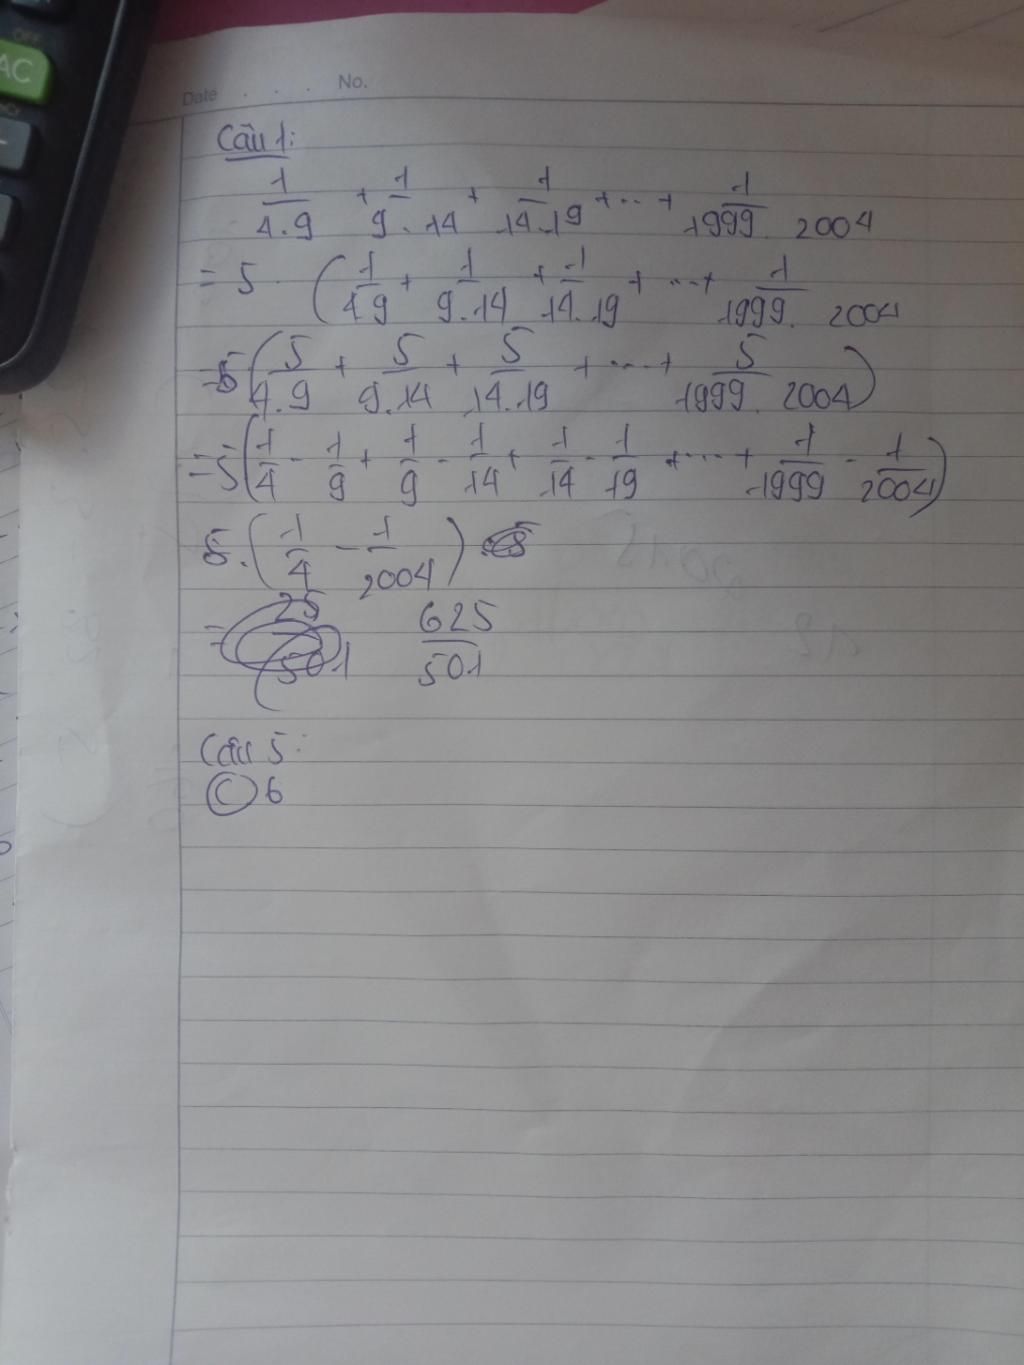 OFF
AC
Date . . . . No.
Câu 1:
1/4.9 + 1/9.14 + 1/14.19 + ... + 1/1999.2004
= 5 . (1/4.9 + 1/9.14 + 1/14.19 + ... + 1/1999.2004
= 5 (5/4.9 + 5/9.14 + 5/14.19 + ... + 5/1999.2004)
= 5 (1/4 - 1/9 + 1/9 - 1/14 + 1/14 - 1/19 + ... + 1/1999 - 1/2004)
5 . (1/4 - 1/2004)
= 25/501 625/501
Câu 5:
C 6